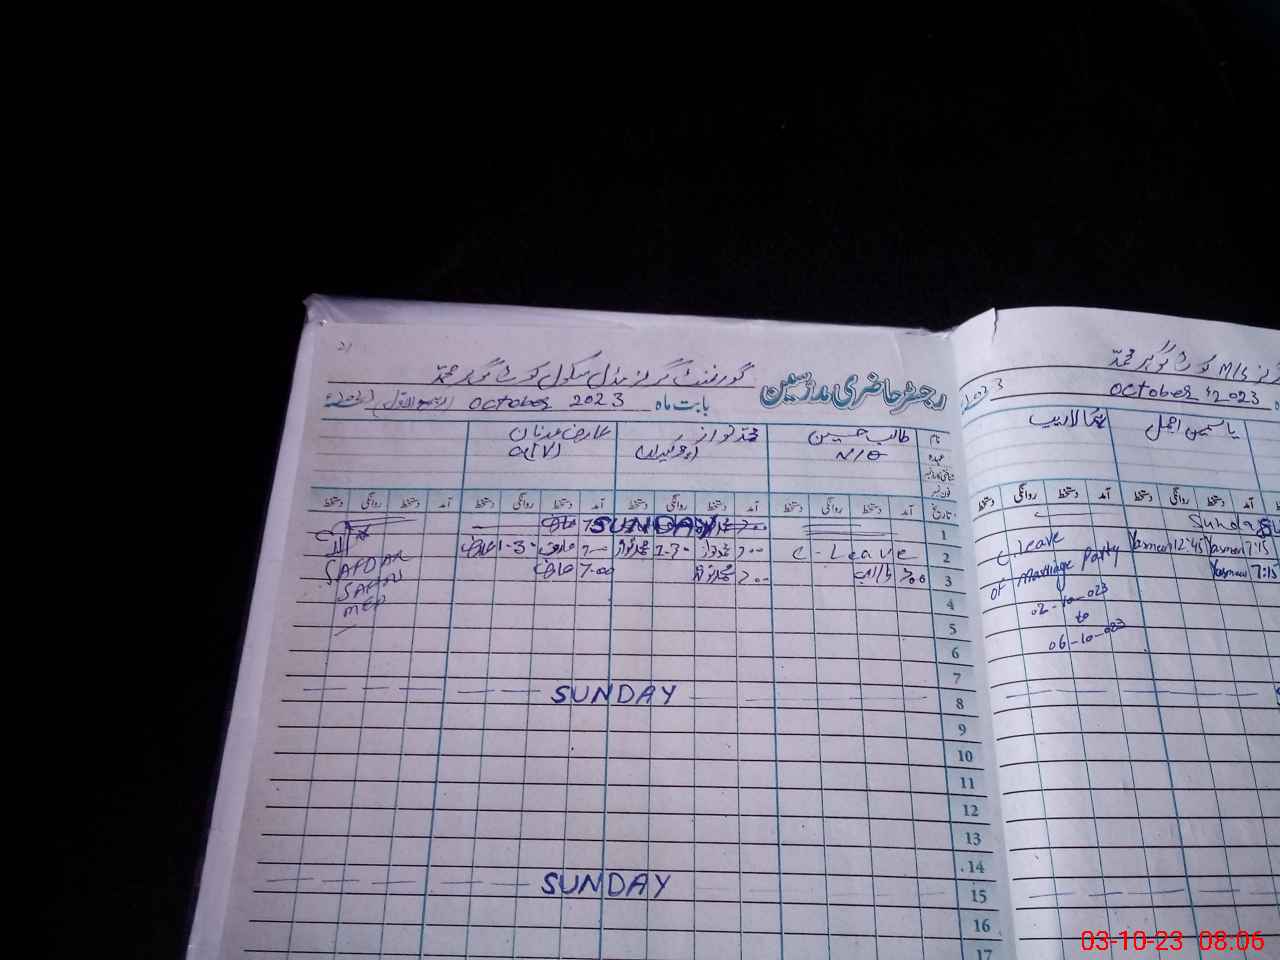 21
گورنمنٹ گرلز مڈل سکول کوٹ گوہر محمد
رجسٹر حاضری مدرسین
بابت ماہ October 2023
طالب حسین
محمد نواز
عارف عدنان
نام
N/Q
عہدہ
تاریخ آمد دستخط روانگی دستخط آمد دستخط روانگی دستخط آمد دستخط روانگی دستخط آمد دستخط روانگی دستخط
1 SUNDAY
2 C-Leave 7:00 1-30 7:00 عارف 1-30 عارف
3 7:00 طالب 7:00 7:00 عارف
SAFDAR
MEP
4
5
6
7
8 SUNDAY
9
10
11
12
13
14
15 SUNDAY
16
17
M/S کوٹ گوہر محمد
October 2023
یاسمین اجمل
آمد دستخط روانگی دستخط آمد دستخط روانگی دستخط
Sunday
7:15 Yasmeen 12:45 Yasmeen
7:15 Yasmeen
C.leave
of Marriage Party
02-10-023
to
06-10-023
03-10-23 08:06